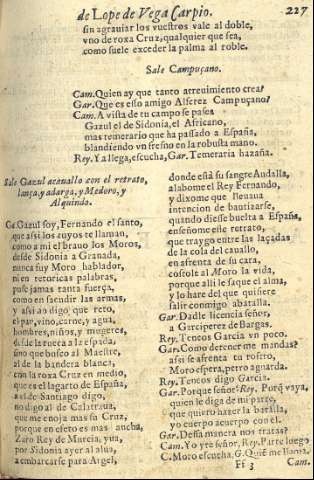 de Lope de Vega Carpio. 227
sin agrauiar los vuestros vale al doble,
vno de roxa Cruz, qualquier que sea,
como suele exceder la palma al roble.
Sale Campuçano.
Cam. Quien ay que tanto atreuimiento crea?
Gar. Que es esso amigo Alferez Campuçano?
Cam. A vista de tu campo se passea
Gazul el de Sidonia, el Africano,
mas temerario que ha passado a España,
blandiendo vn fresno en la robusta mano.
Rey. Ya llega, escucha, Gar. Temeraria hazaña.
Sale Gazul acauallo con el retrato,
lança, y adarga, y Medoro, y
Alquindo.
Ga. Gazul soy, Fernando el santo,
que assi los tuyos te llaman,
como a mi el brauo los Moros,
desde Sidonia a Granada,
nunca fuy Moro hablador,
ni en retoricas palabras,
puse jamas tanta fuerça,
como en sacudir las armas,
y assi no digo que reto,
el pan, vino, carne, y agua,
hombres, niños, y mugeres,
desde la rueca a la espada,
sino que busco al Maestre,
al de la bandera blanca,
con la roxa Cruz en medio,
que es el lagarto de España,
al de Santiago digo,
no digo al de Calatraua,
que me enoja mas su Cruz,
porque en efeto es mas ancha,
Zaro Rey de Murcia, yua,
por Sidonia ayer al alua,
a embarcarse para Argel,
donde està su sangre Andalla,
alabome el Rey Fernando,
y dixome que lleuaua
intencion de bautizarse,
quando diesse buelta a España,
enseñome este retrato,
que traygo entre las laçadas
de la cola del cauallo,
en afrenta de su cara,
costole al Moro la vida,
porque alli le saque el alma,
y lo hare del que quisiere
salir conmigo abatalla.
Gar. Dadle licencia señor,
a Garciperez de Bargas.
Rey. Teneos Garcia vn poco.
Gar. Como detenerme mandas?
assi se afrenta tu rostro,
Moro espera, perro aguarda.
Rey. Teneos digo Garcia.
Gar. Porque señor? Rey. Porq̃ vaya,
quien le diga de mi parte,
que quiero hazer la batalla,
yo cuerpo acuerpo con el.
Gar. Dessa manera nos tratas?
Cam. Yo yre señor, Rey. Parte luego
C. Moro escucha. G. Quiẽ me llama,
Ff 3 Cam.